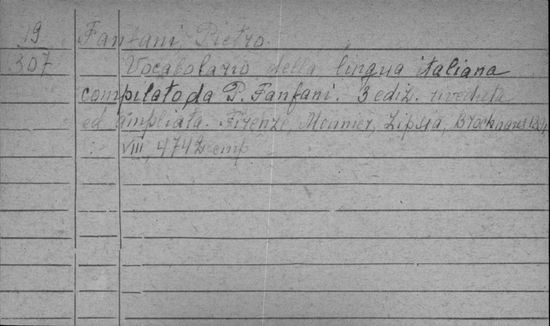 19 Fanfani, Pietro.
307 Vocabolario della lingua italiana
compilato da P. Fanfani. 3 ediz. riveduta
ed ampliata. Firenze, Monnier, Lipsia, Brockhaus
VIII, 474 2 emp